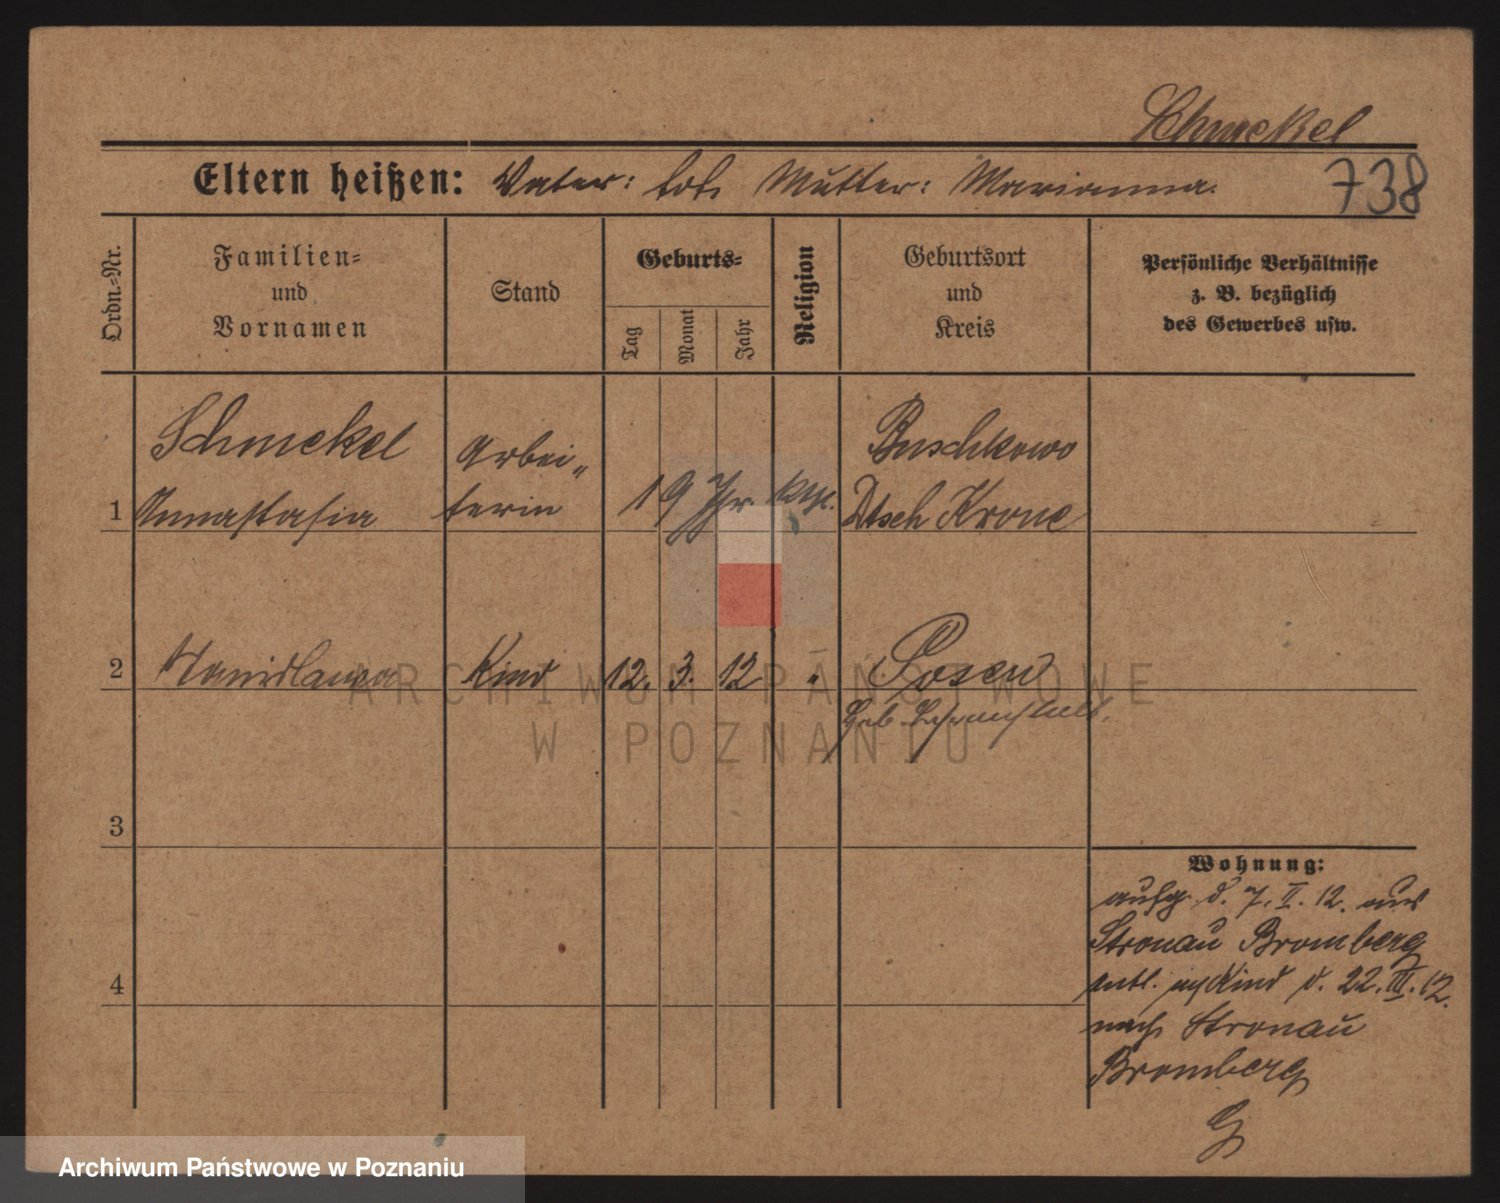 Schmekel
Eltern heißen: Vater: tot, Mutter: Marianna.
738
Ordn.-Nr.
Familien-
und
Vornamen
Stand
Geburts-
Tag
Monat
Jahr
Religion
Geburtsort
und
Kreis
Persönliche Verhältnisse
z. B. bezüglich
des Gewerbes usw.
Schmekel Arbei- Buschkowo
1 Annastasia terin 19 Jhr. kth. Dtsch Krone
2 Stanislawa Kind 12. 3. 12 " Posen
Geb.
3
Wohnung:
aufg. d. 7. II. 12. aus
Stronau Bromberg
entl. m Kind d. 22. III. 12.
4
nach Stronau
Bromberg
ARCHIWUM PAŃSTWOWE
W POZNANIU
Archiwum Państwowe w Poznaniu